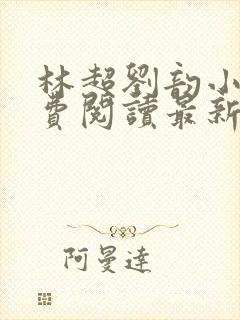 林超劉韵小
費閱讀最新
阿曼達